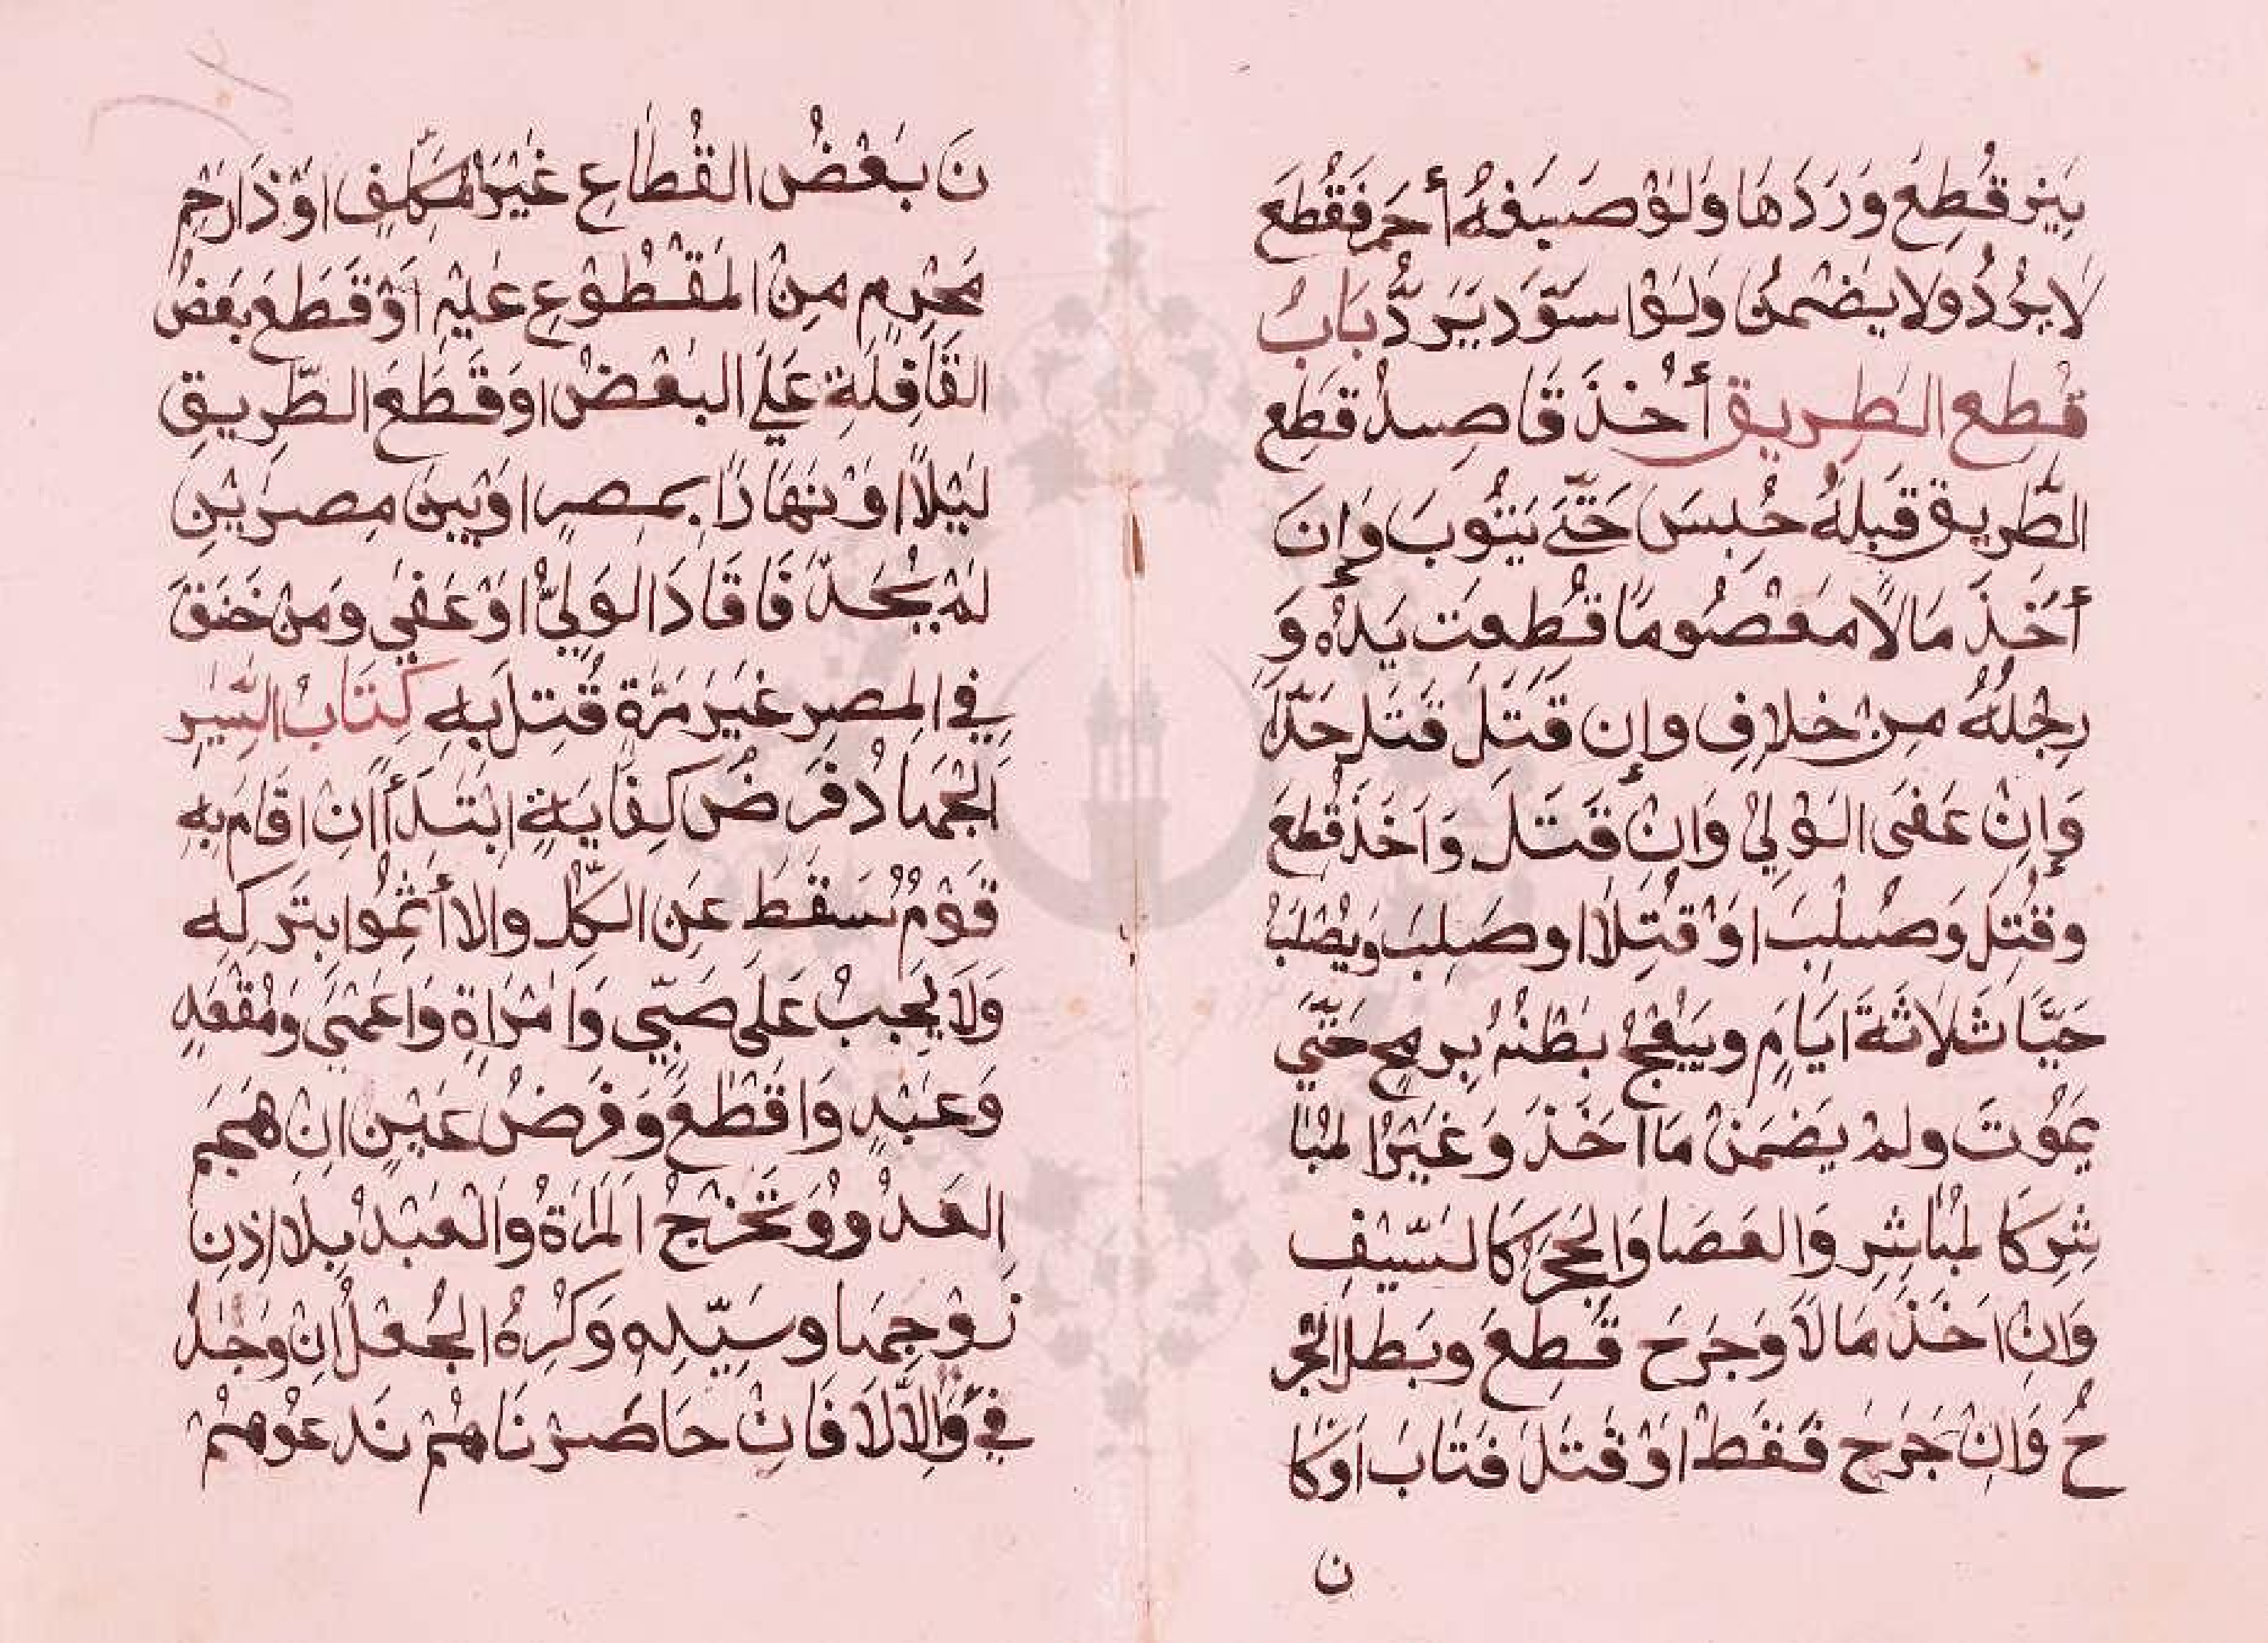 يَنِرَ قُطِعَ وَرَدَهَا وَلَوْ صَبَغَهُ أَحمَرَ فَقُطِعَ
لَا يُرَدُّ وَلَا يَضْمَنُ وَلَوْ اسَوَّدَ يَرَدُّ بَابُ
قُطِع الطَرِيق أُخِذَ قَاصِدُ قَطِع
الطَّرِيقِ قَبلَهُ حُبِسَ حَتَّى يَتُوبَ وَإِنَ
أَخَذَ مَالًا مَعْصُومًا قُطِعَت يَدُهُ وَ
رِجْلُهُ مِنْ خلافِ وإن قَتَلَ قَتَل حَدًّا
وَإِنْ عَفَى الوَلِيُ وَإنْ قَتَلَ وَاَخَذَ قُطِعَ
وقُتِلَ وَصُلِبَ اوْ قُتِلَا اوصَلِبَ وَيُصْلَبُ
حَيَّا ثَلاثَةَ ايَامٍ ويَبْعَجُ بَطْنُهُ بِرمحٍ حَتَّي
يَمُوْتَ ولمْ يَضْمَنْ مَا اخَذَ وَغَيْرُ المُبَا
شِرِكَا لمُبَاشِرِ وَالعَصَا وَالحَجَرُ كَا لسَّيْفِ
وَإنْ اخَذَ مَالًا وَجَرَحَ قَطِعَ وبَطلَ الجَر
حُ وَإنْ جَرَحَ فَقَطْ اوْ قَتَلَ فَتَابَ اوْكَا
ن
نَ بَعْضُ القُطَاعِ غَيْرَ مُكَلَّفٍ اوْ ذَا رَحِم
مَحْرِمٍ مِنْ المَقْطُوْعِ عَلَيْهِ اَوْ قَطَعَ بَعَضُ
القَافِلَةِ عَلَي البَعْضْ اوَقَطَعَ الطَّرِيقِ
لَيْلًا اوْ نَهَارًا بمِصرٍ اوْبَينَ مِصرَيْنِ
لَمْ يُحَدَّ فَاقَادَ الوَلِيُّ اوْ عَفَى وَمَنْ خَنَقَ
فِي المِصرِ غَيَرَ مَرَّةٍ قُتِلَ بَهِ كِتَابُ السِّيَرِ
الجِهَادُ فَرَضُ كِفَايَةٍ ابْتَدَأً اَنْ اقَامَ بِهِ
قَوْمُ سَقَطَ عَنِ الكُلِّ وإلا أَثِمُوا بتَركِه
وَلَا يَجِبُ عَلَى صَبِّيِ وَامْرَاةٍ وَاعَمْيَ وَمُقْعَدٍ
وَعَبْدٍ وَاقْطَعَ وَفَرَضُ عَيْنٍ انْ هَجَمَ
العَدُوُ وَتَخْرُجُ المَرَاةُ وَالْعَبْدُ بِلَا إذِنِ
زَوْجِهَا وسَيِّدِهِ وَكُرِهُ الجُعْلُ انْ وَجَدُ
فِيٌ وَإلَّا لَا فَانْ حَاصَرْنَا هُمْ نَدعُوهُمْ